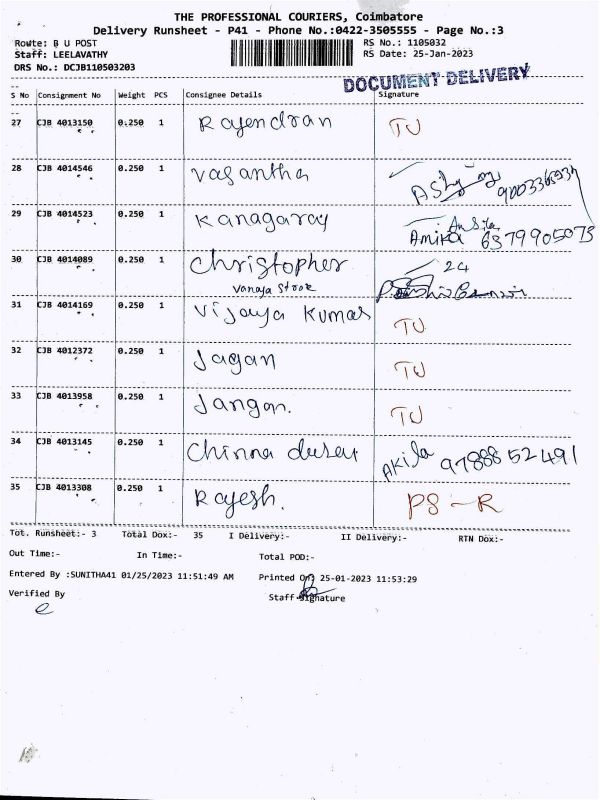 THE PROFESSIONAL COURIERS, Coimbatore
Delivery Runsheet - P41 - Phone No.:0422-3505555 - Page No.:3
Route: B U POST RS No.: 1105032
Staff: LEELAVATHY RS Date: 25-Jan-2023
DRS No.: DCJB110503203
DOCUMENT DELIVERY
S No Consignment No Weight PCS Consignee Details Signature
27 CJB 4013150 0.250 1 Rajendran TU
28 CJB 4014546 0.250 1 Vasantha
29 CJB 4014523 0.250 1 Kanagaraj Amirta 6379905073
30 CJB 4014089 0.250 1 Christopher 24
vanaya stook
31 CJB 4014169 0.250 1 Vijaya Kumar TU
32 CJB 4012372 0.250 1 Jagan TU
33 CJB 4013958 0.250 1 Jangan. TU
34 CJB 4013145 0.250 1 Chinna durai Akila 97888 52491
35 CJB 4013308 0.250 1 Rajesh. PS - R
Tot. Runsheet:- 3 Total Dox:- 35 I Delivery:- II Delivery:- RTN Dox:-
Out Time:- In Time:- Total POD:-
Entered By :SUNITHA41 01/25/2023 11:51:49 AM Printed On: 25-01-2023 11:53:29
Verified By Staff Signature